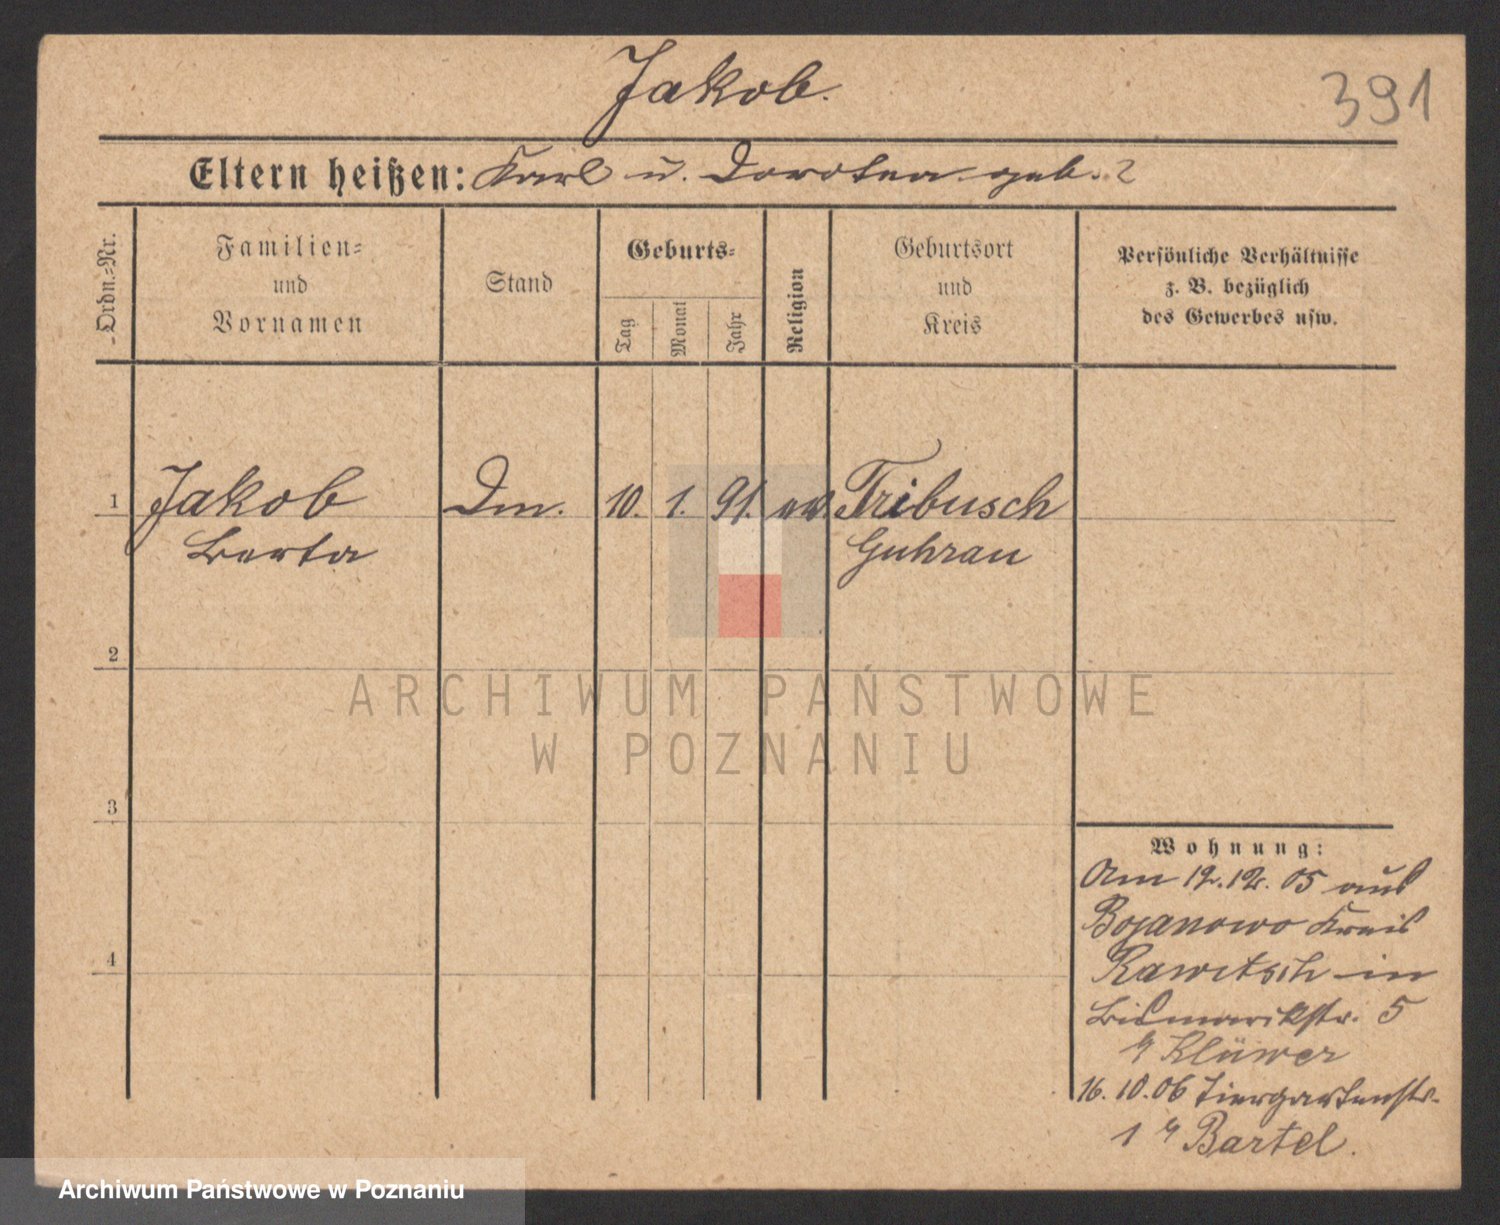 Jakob.
391
Eltern heißen: Karl u. Dorotea geb. ?
Ordn.-Nr.
Familien-
und
Vornamen
Stand
Geburts-
Tag
Monat
Jahr
Religion
Geburtsort
und
Kreis
Persönliche Verhältnisse
z. B. bezüglich
des Gewerbes usw.
1 Jakob Dm. 10. 1. 91. ev. Tribusch
Berta Guhrau
2
ARCHIWUM PAŃSTWOWE
W POZNANIU
3
4
Wohnung:
Am 12.12.05 aus
Bojanowo Kreis
Rawitsch in
Bismarckstr. 5
Klüwer
16.10.06 Tiergartenstr.
1 Bartel.
Archiwum Państwowe w Poznaniu